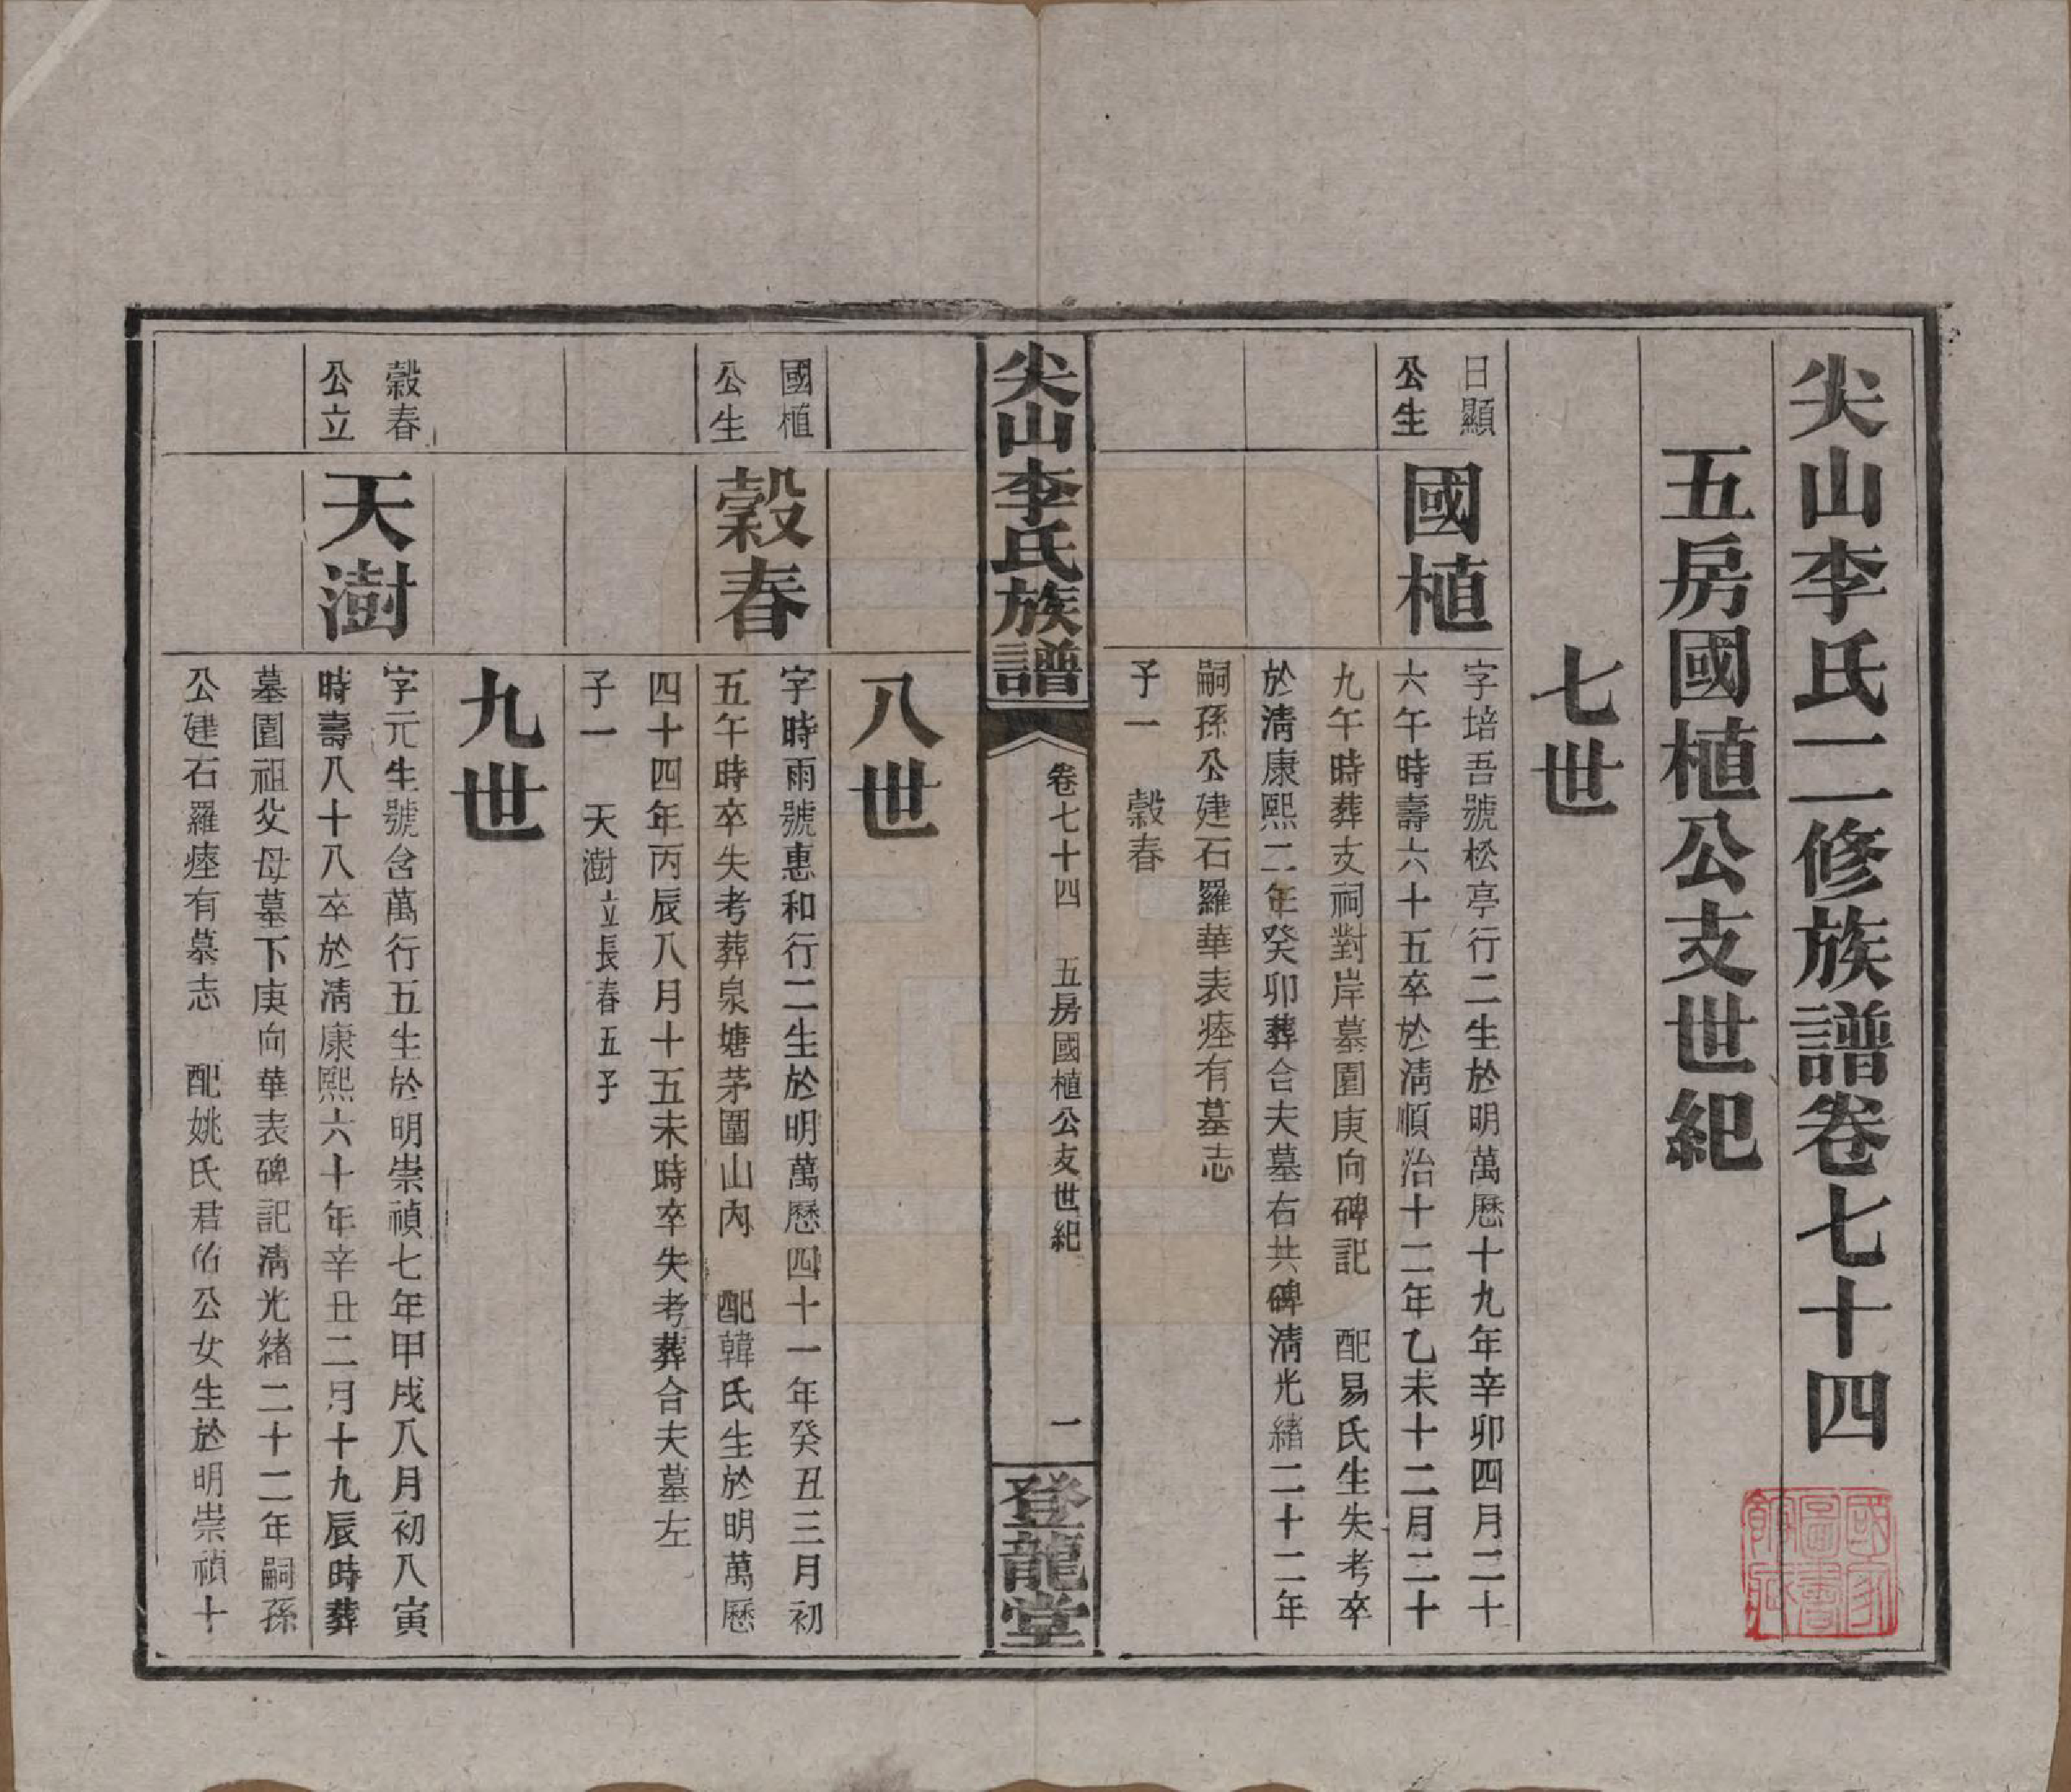 尖山李氏二修族譜卷七十四
五房國植公支世紀
七世
日顯
公生
國植
字培吾號松亭行二生於明萬歷十九年辛卯四月二十
六午時壽六十五卒於淸順治十二年乙未十二月二十
九午時葬支祠對岸墓圍庚向碑記 配易氏生失考卒
於淸康熙二年癸卯葬合夫墓右共碑淸光緒二十二年
嗣孫公建石羅華表瘞有墓志
子一 穀春
尖山李氏族譜
卷七十四 五房國植公支世紀
一
登龍堂
八世
國植
公生
穀春
字時雨號惠和行二生於明萬歷四十一年癸丑三月初
五午時卒失考葬泉塘茅圍山內 配韓氏生於明萬歷
四十四年丙辰八月十五未時卒失考葬合夫墓左
子一 天澍立長春五子
九世
穀春
公立
天澍
字元生號含萬行五生於明崇禎七年甲戌八月初八寅
時壽八十八卒於淸康熙六十年辛丑二月十九辰時葬
墓圍祖父母墓下庚向華表碑記淸光緒二十二年嗣孫
公建石羅瘞有墓志 配姚氏君佑公女生於明崇禎十
國家
圖書
館藏